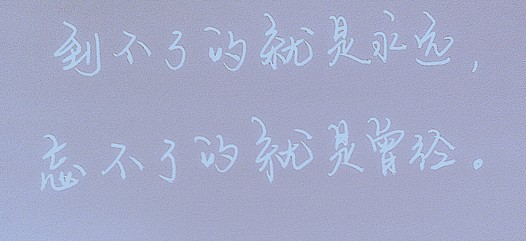 到不了的就是永远，
忘不了的就是曾经。